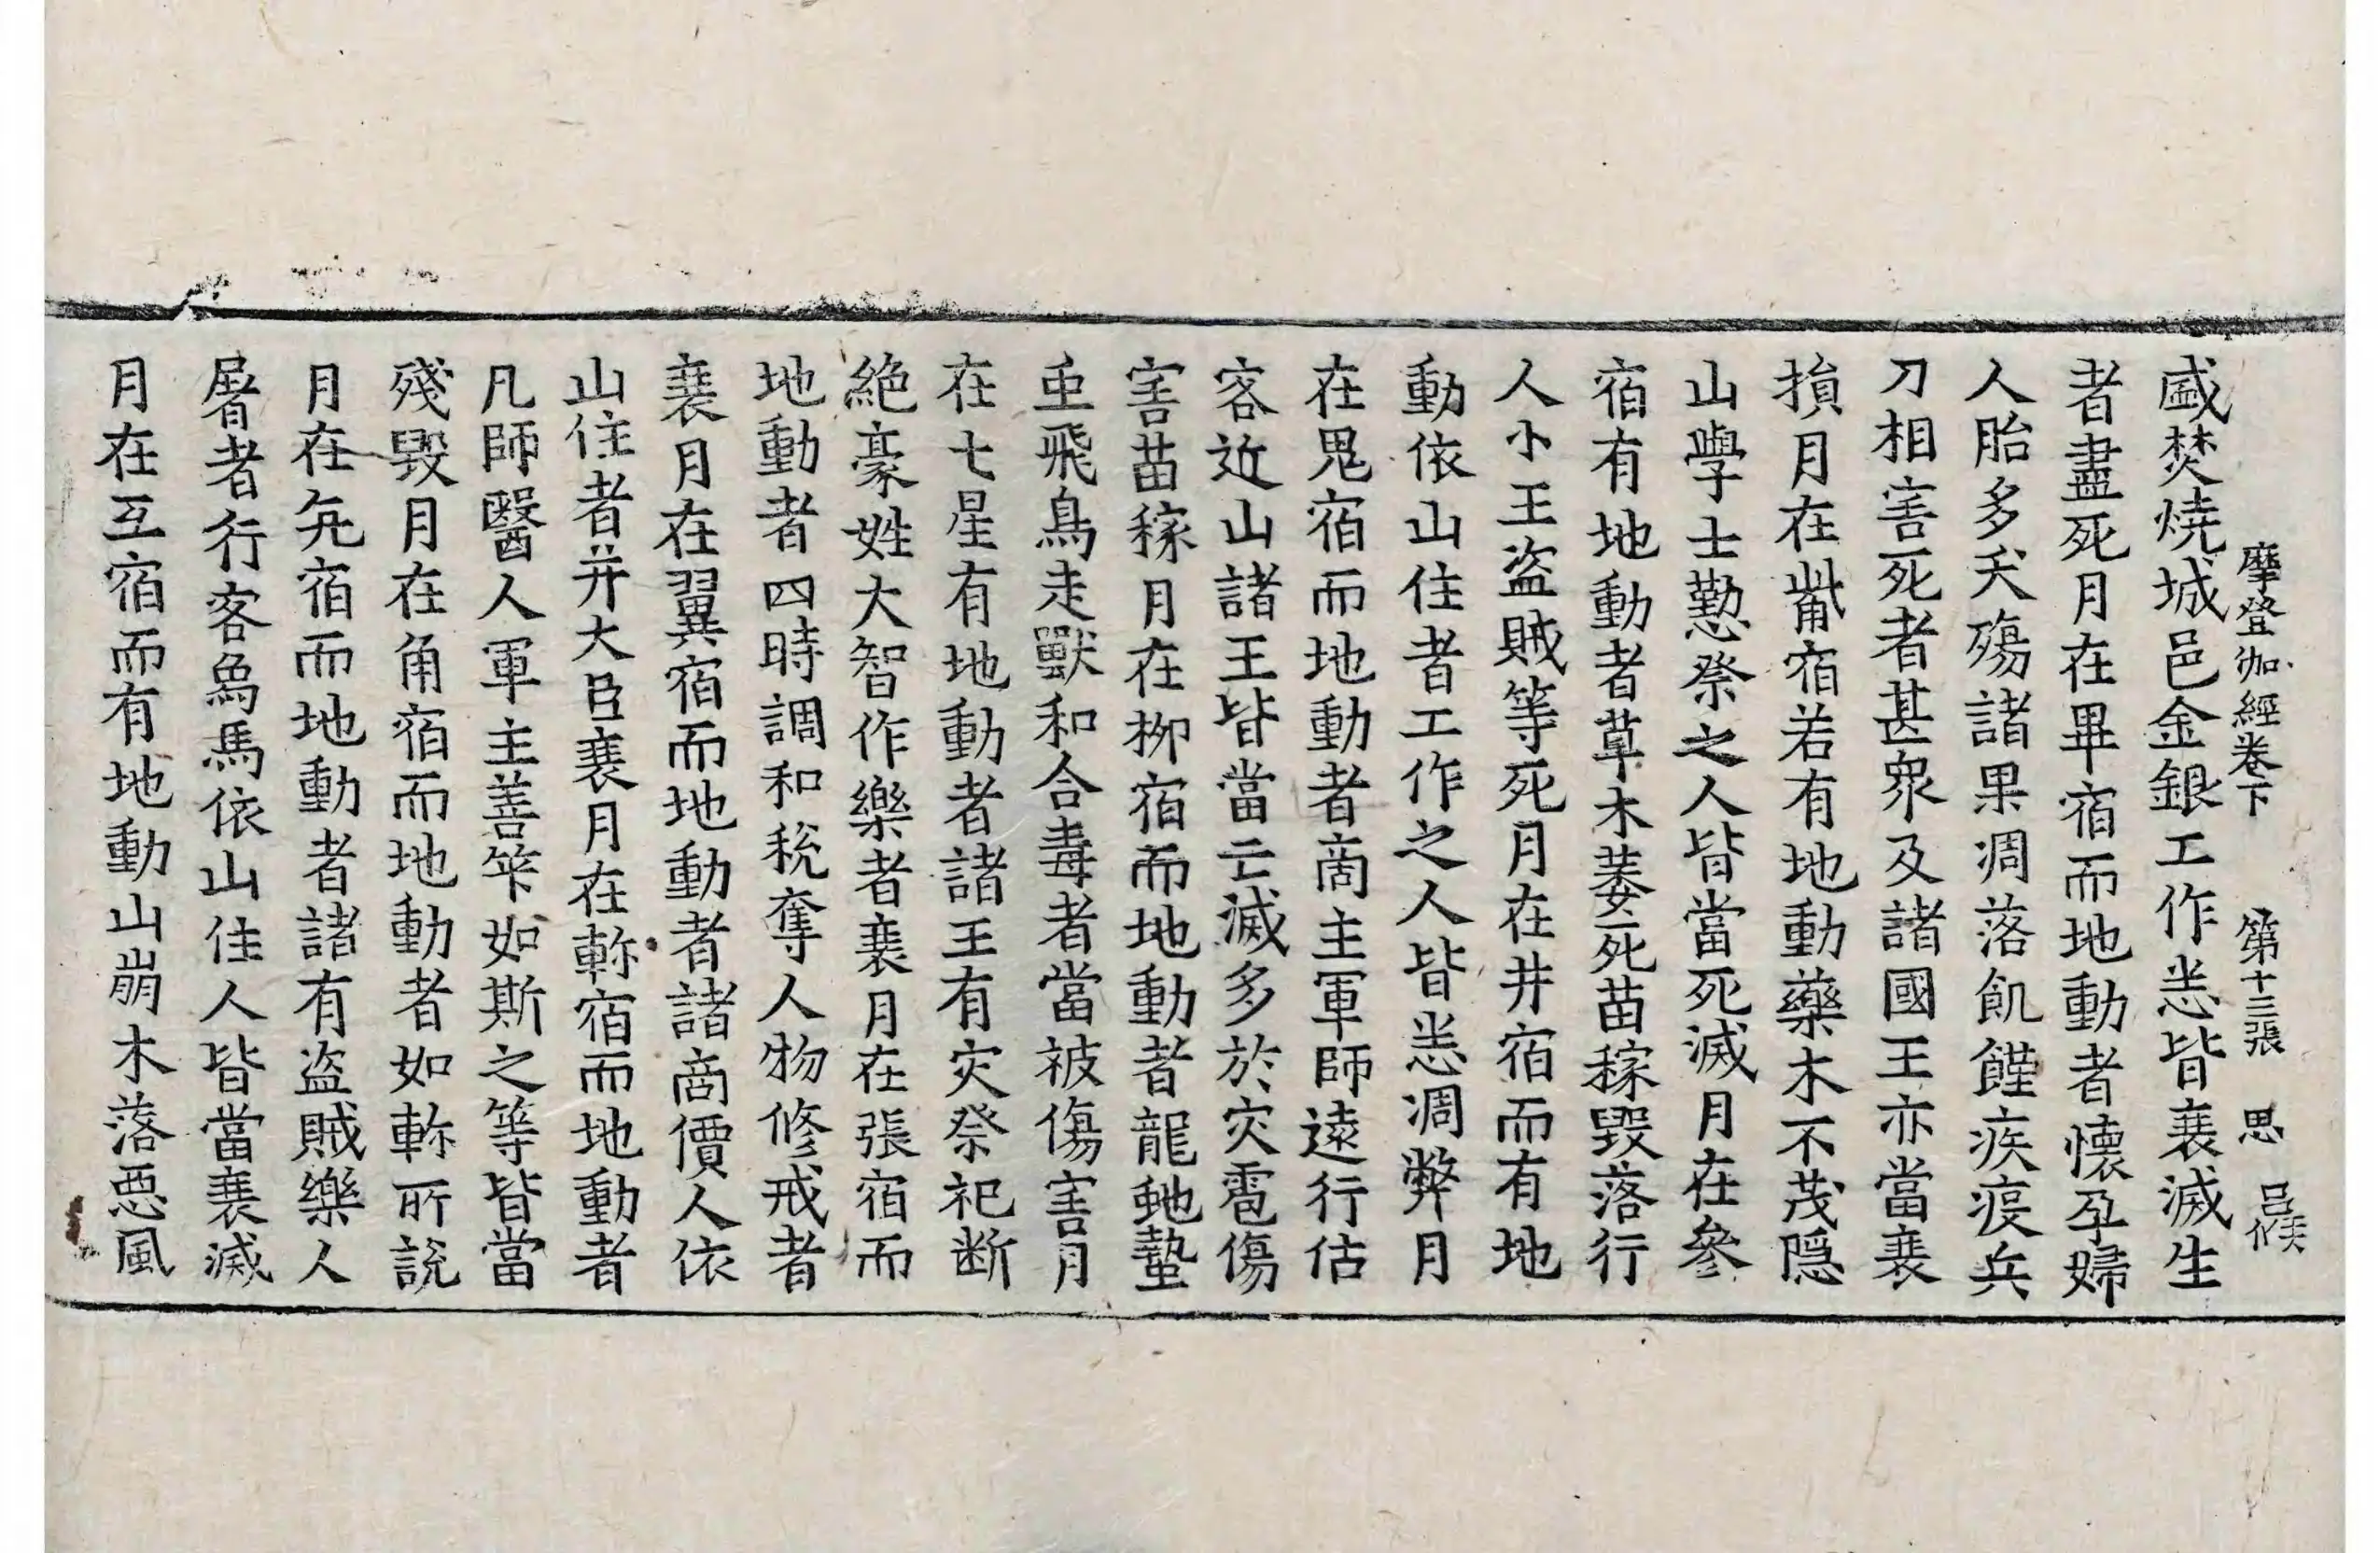 摩登伽經卷下 第十三張 思
盛焚燒城邑金銀工作恙皆衰滅生
者盡死月在畢宿而地動者懷孕婦
人胎多夭殤諸果凋落飢饉疾疫兵
刀相害死者甚衆及諸國王亦當衰
損月在觜宿若有地動藥木不茂隱
山學士懃祭之人皆當死滅月在參
宿有地動者草木萎死苗稼毀落行
人小王盜賊等死月在井宿而有地
動依山住者工作之人皆悉凋弊月
在鬼宿而地動者商主軍師遠行估
客近山諸王皆當亡滅多於灾雹傷
害苗稼月在柳宿而地動者龍虵蟄
虫飛鳥走獸和合毒者當被傷害月
在七星有地動者諸王有灾祭祀断
絶豪姓大智作樂者衰月在張宿而
地動者四時調和稅奪人物修戒者
衰月在翼宿而地動者諸商價人依
山住者并大臣衰月在軫宿而地動者
凡師醫人軍主善筭如斯之等皆當
殘毀月在角宿而地動者如軫所說
月在亢宿而地動者諸有盜賊樂人
屠者行客象馬依山住人皆當衰滅
月在互宿而有地動山崩木落惡風